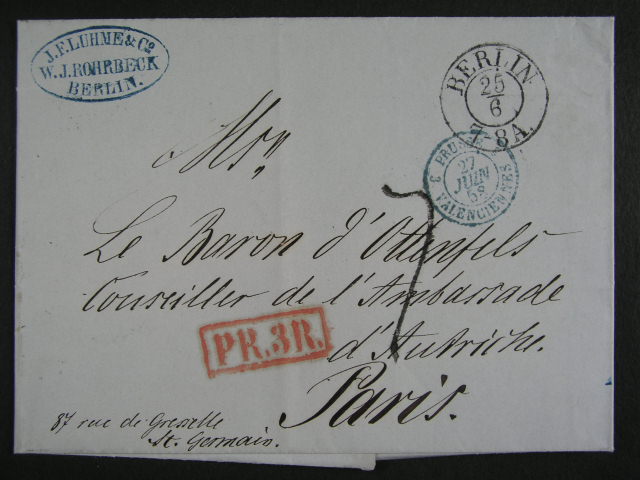 J.F.LUHME & Co
W.J.ROHRBECK
BERLIN.
BERLIN
25
6
7-8A.
3 PRUSSE
27
JUIN
68
VALENCIENNES
Mr,,
7
Le Baron d'Ottenfels
Conseiller de l'Ambassade
d'Autriche.
PR.3R.
Paris.
87 rue de Grenelle
St. Germain.